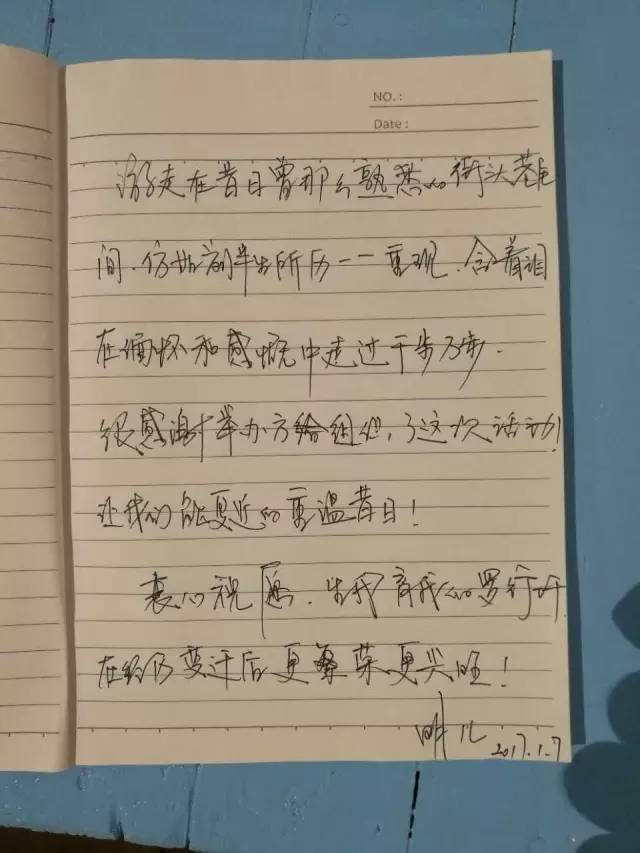 NO.:
Date:
游走在昔日曾那么熟悉的街头巷尾
间.仿如前半生所历一一重现.含着泪
在缅怀和感慨中走过千步万步.
很感谢举办方给组织了这次活动!
让我们能更近的重温昔日!
衷心祝愿.生我育我的罗行圩
在经历变迁后更繁荣更兴旺!
明儿
2017.1.7